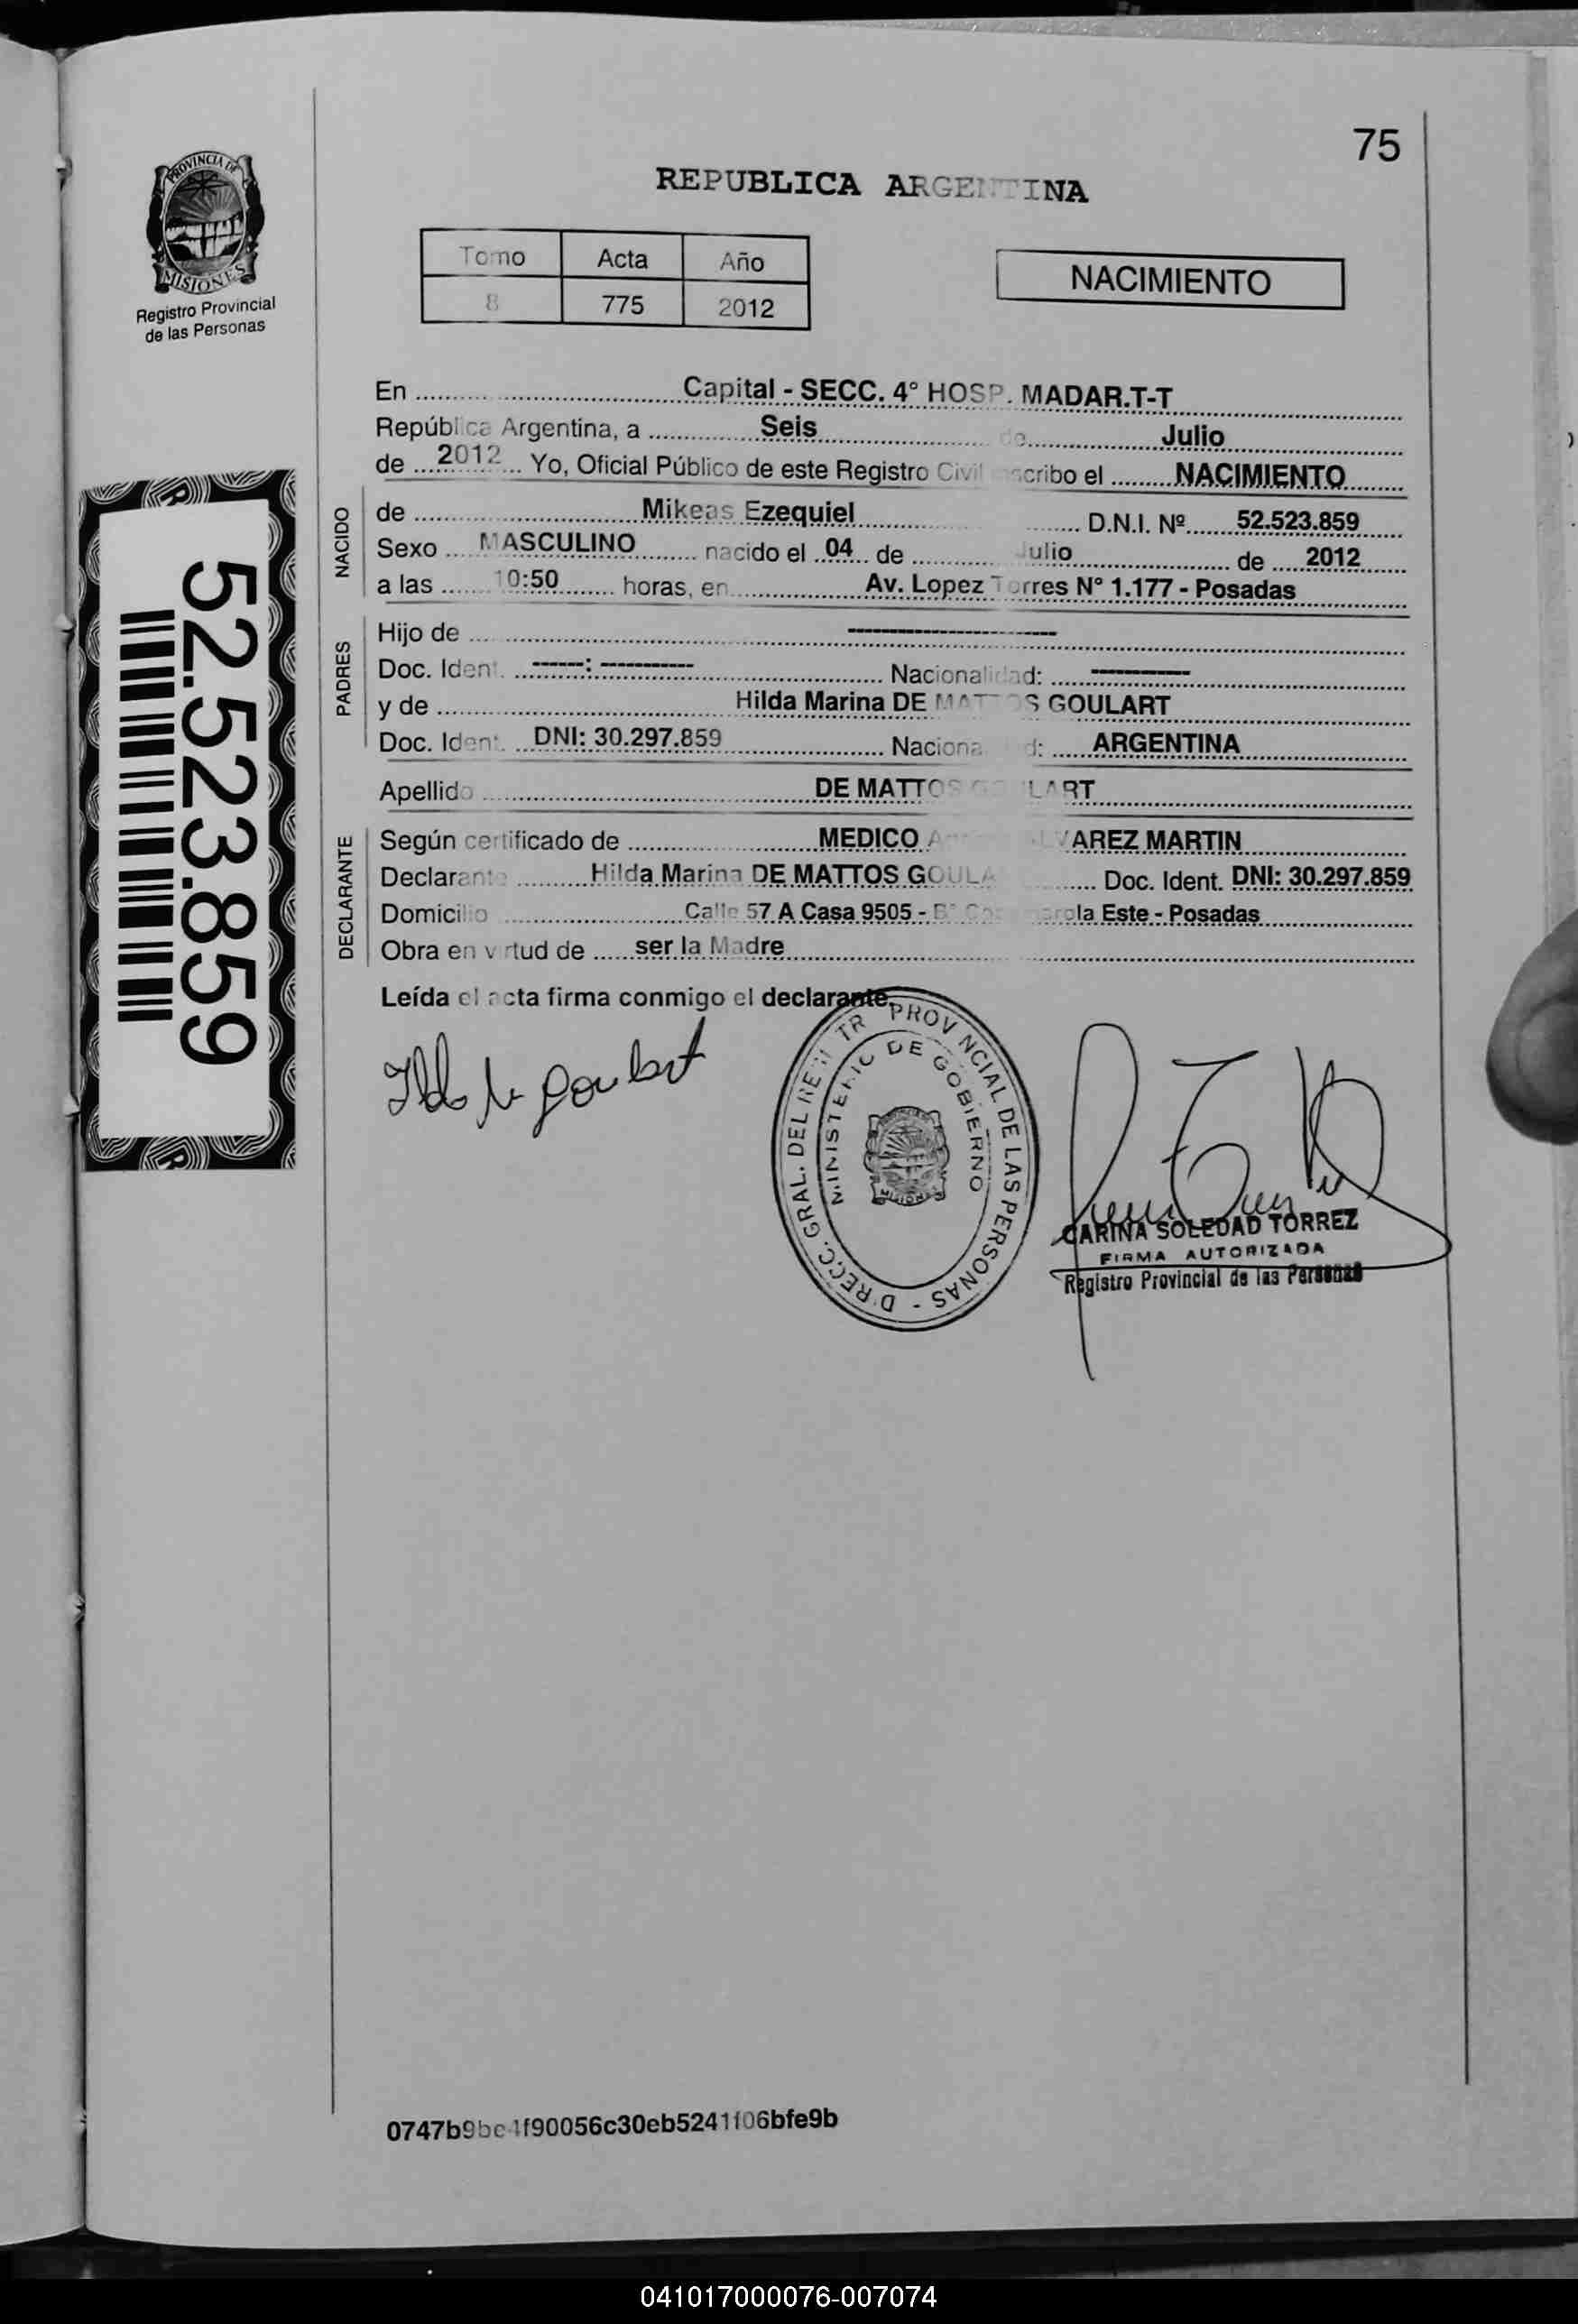 75
PROVINCIA DE
MISIONES
Registro Provincial
de las Personas
REPUBLICA ARGENTINA
Tomo Acta Año
8 775 2012
NACIMIENTO
En Capital - SECC. 4° HOSP. MADAR.T-T
República Argentina, a Seis de Julio
de 2012 Yo, Oficial Público de este Registro Civil scribo el NACIMIENTO
NACIDO
de Mikeas Ezequiel D.N.I. Nº 52.523.859
Sexo MASCULINO nacido el 04 de ulio de 2012
a las 10:50 horas, en Av. Lopez Torres N° 1.177 - Posadas
PADRES
Hijo de --------------------
Doc. Ident. ------: ----------- Nacionalidad: -----------
y de Hilda Marina DE MATTOS GOULART
Doc. Ident. DNI: 30.297.859 Naciona d: ARGENTINA
Apellido DE MATTOS GO LART
DECLARANTE
Según certificado de MEDICO A LVAREZ MARTIN
Declarante Hilda Marina DE MATTOS GOULA Doc. Ident. DNI: 30.297.859
Domicilio Calle 57 A Casa 9505 - B° arola Este - Posadas
Obra en virtud de ser la Madre
Leída el acta firma conmigo el declarante.
DIRECC. GRAL. DEL REGISTR PROVINCIAL DE LAS PERSONAS -
MINISTERIO DE GOBIERNO
MISIONES
CARINA SOLEDAD TORREZ
FIRMA AUTORIZADA
Registro Provincial de las Personas
52.523.859
0747b9bc4f90056c30eb5241f06bfe9b
041017000076-007074